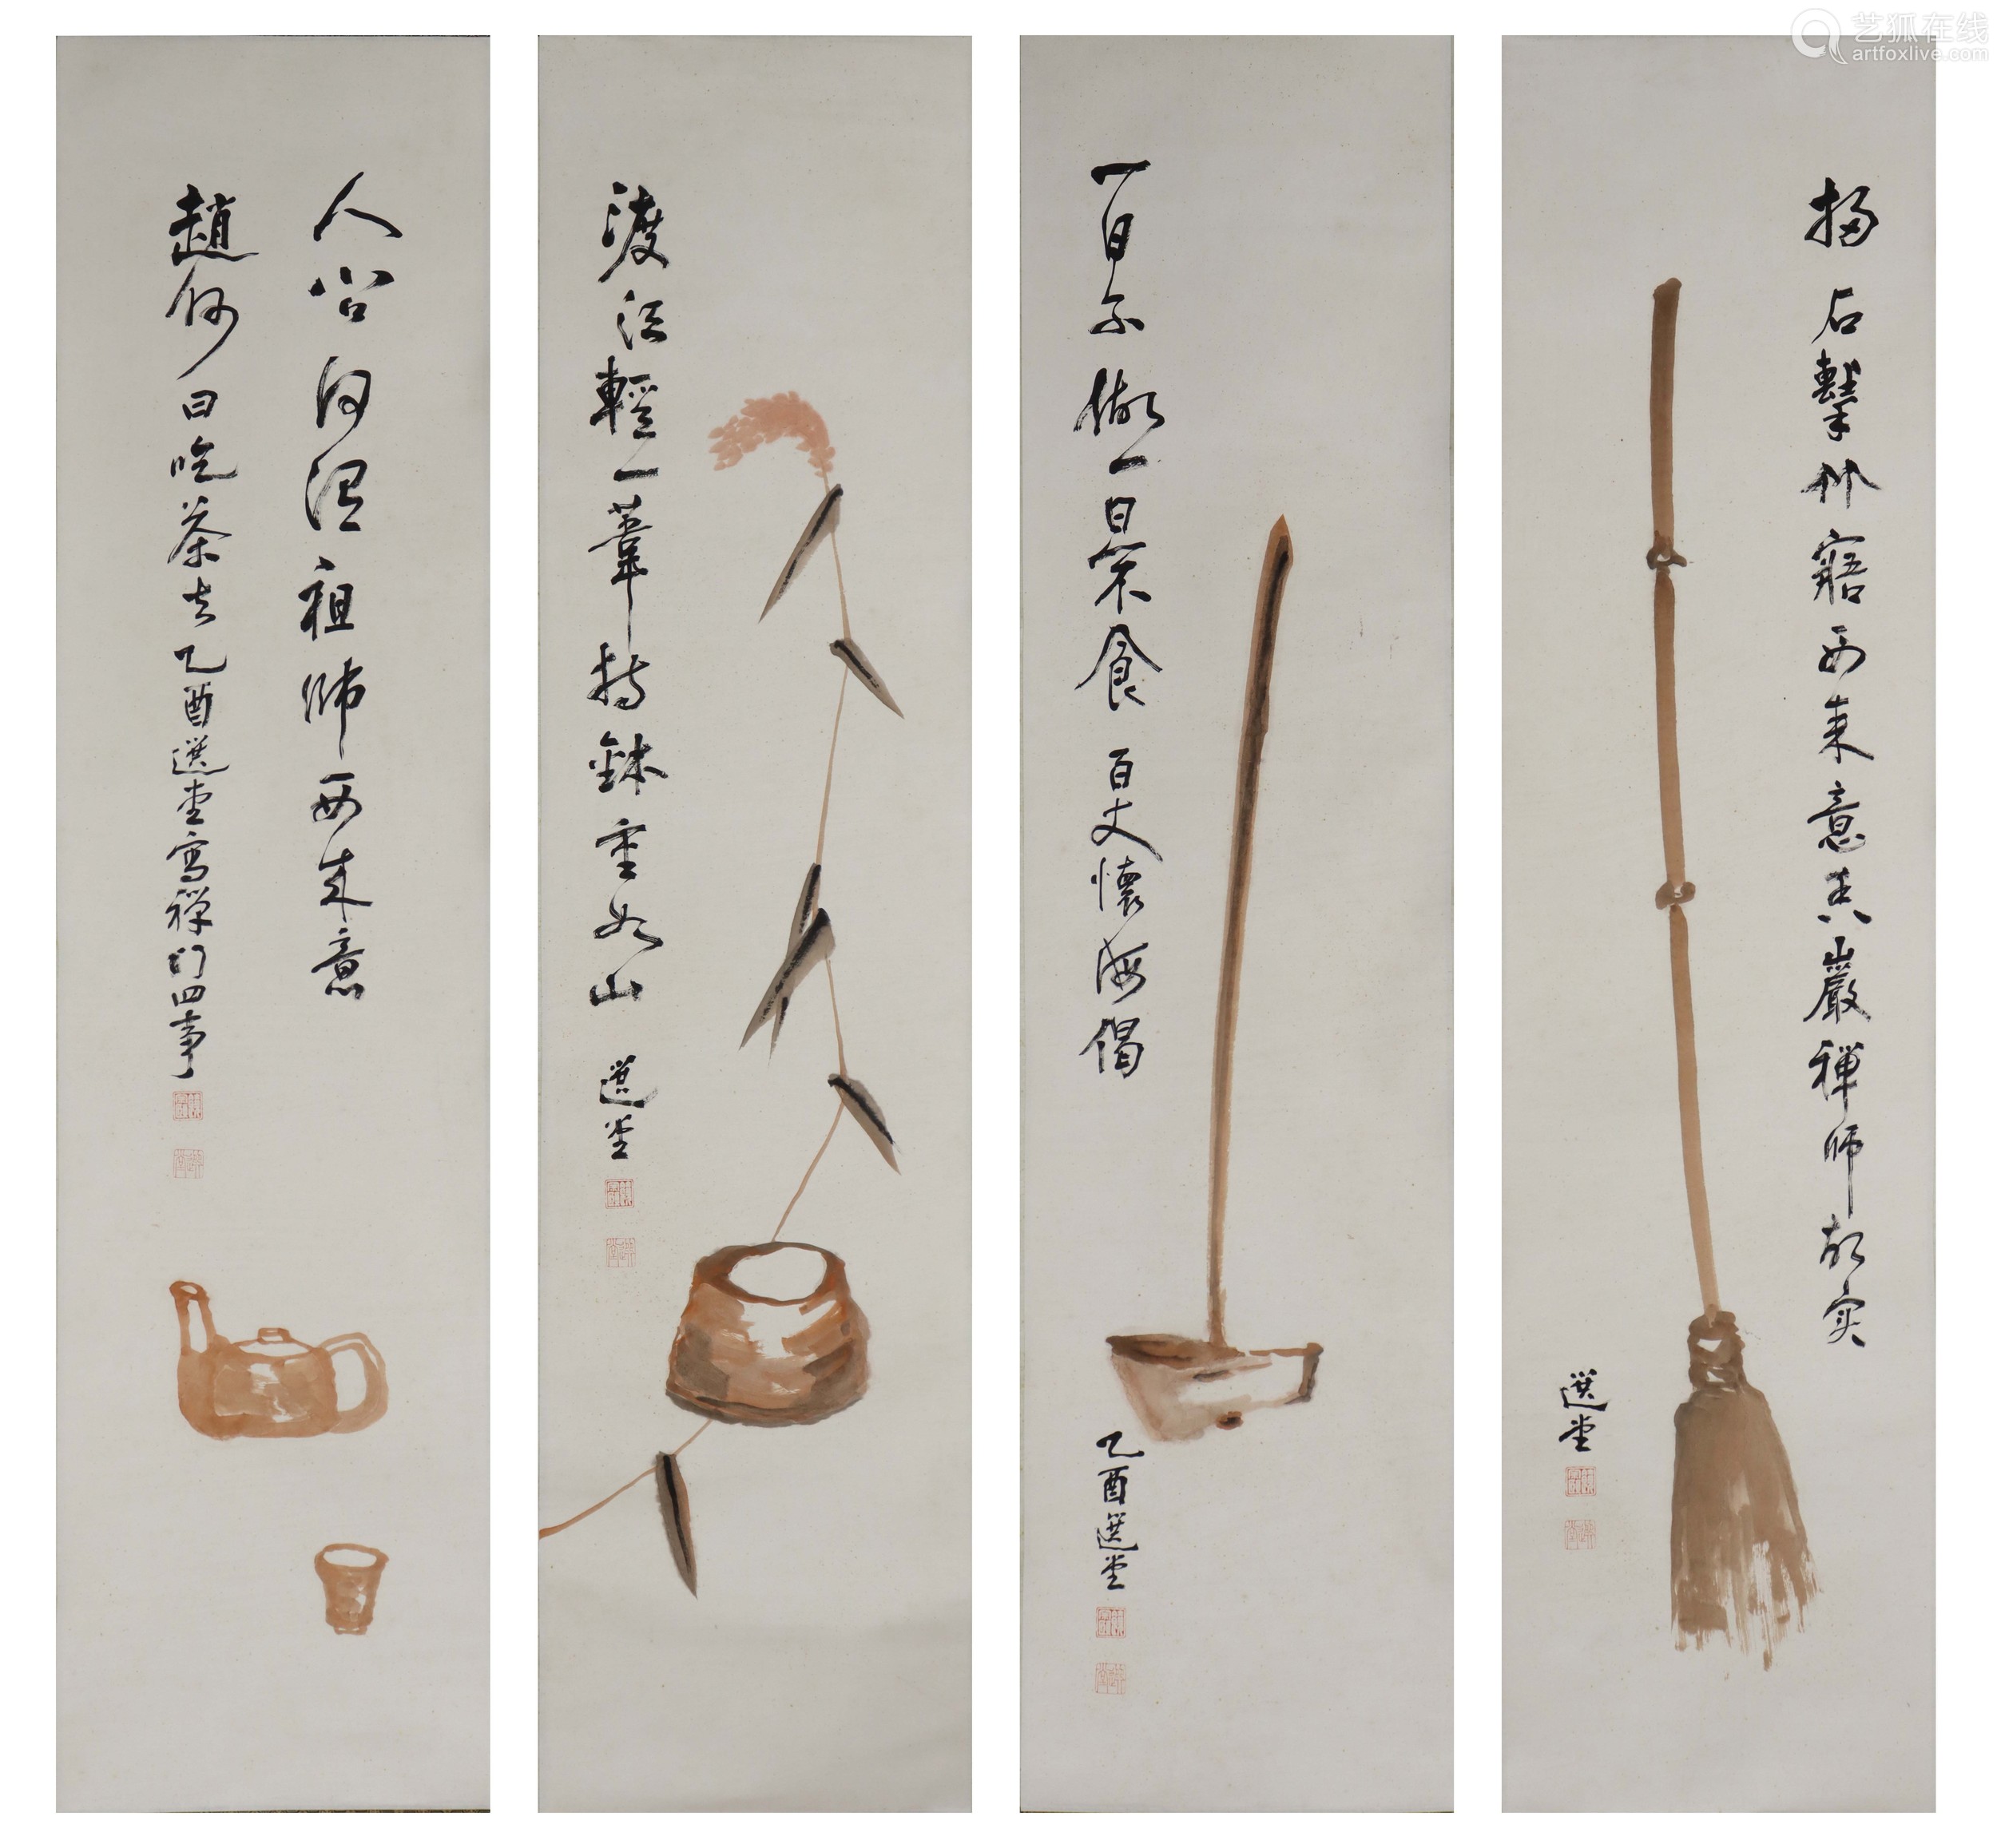 艺狐在线
artfoxlive.com
掃石擊竹寤西来意香嚴禪師故实
選堂
一日不做一日不食百丈懷海偈
乙酉選堂
渡江輕一葦持鉢重如山選堂
人祖師西来意
趙州曰吃茶去乙酉選堂寫禪門四事